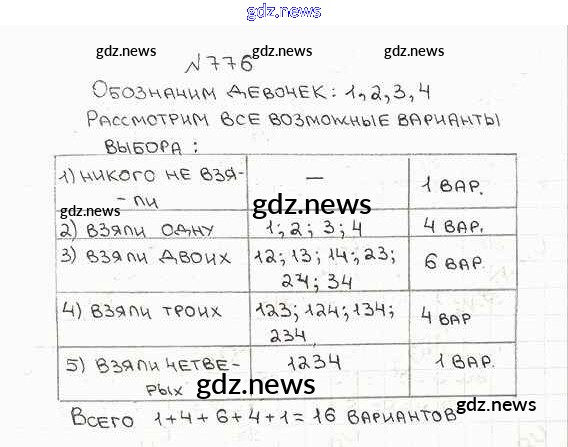 gdz.news
gdz.news gdz.news gdz.news
№776
Обозначим девочек: 1,2,3,4
Рассмотрим все возможные варианты
выбора:
1) никого не взя- — 1 вар.
- ли gdz.news
gdz.news gdz.news
2) взяли одну 1; 2; 3; 4 4 вар.
3) взяли двоих 12; 13; 14; 23; 6 вар.
24; 34
gdz.news gdz.news gdz.news
4) взяли троих 123; 124; 134; 4 вар
234
5) взяли четве- 1234 1 вар.
рых gdz.news gdz.news
Всего 1+4+6+4+1=16 вариантов
gdz.news